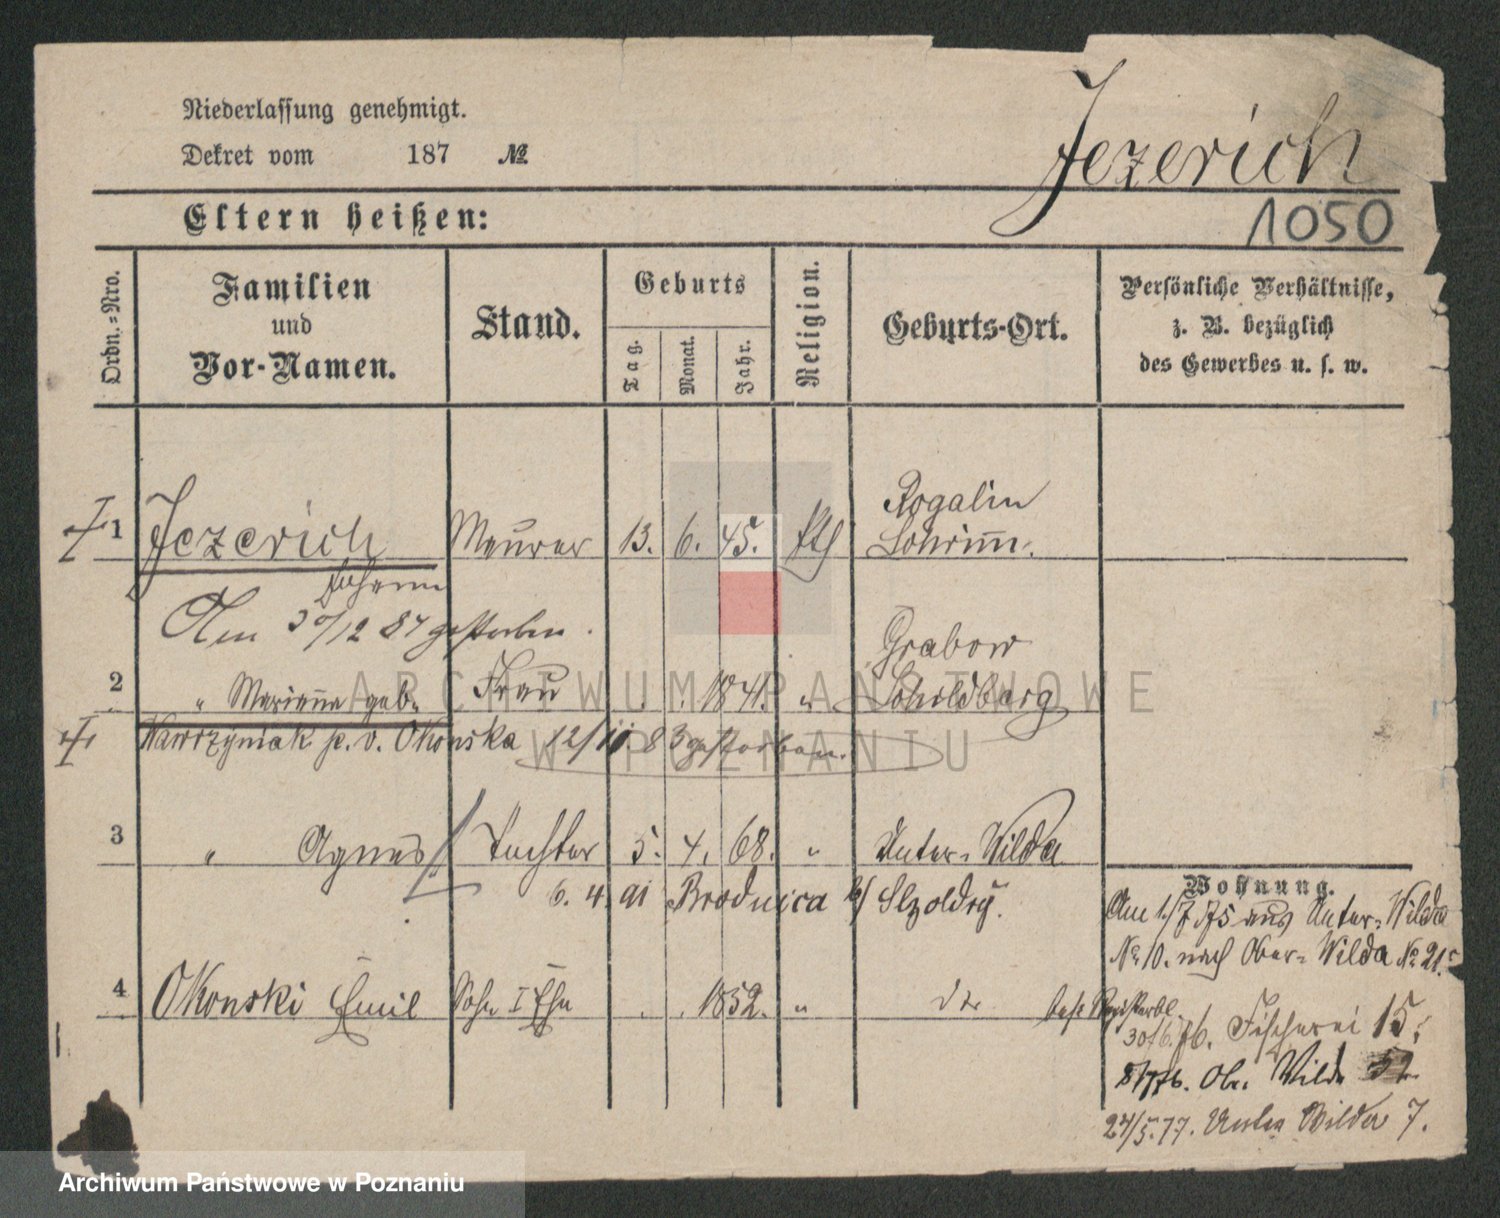 Niederlassung genehmigt.
Dekret vom 187 №
Jezerich
Eltern heißen:
1050
Ordn.-Nro.
Familien
und
Vor-Namen.
Stand.
Geburts
Tag.
Monat.
Jahr.
Religion.
Geburts-Ort.
Persönliche Verhältnisse,
z. B. bezüglich
des Gewerbes u. s. w.
Rogalin
1 Jezerich Maurer 13. 6. 45. kth Schrimm.
Johann
Am 30/12 87 gestorben.
Grabow
2 " Marianna geb. Frau 1841. " Schildberg
Wawrzyniak p. v. Okonska 12/10 83 gestorben.
3 " Agnes Tochter 5. 4. 68. " Unter-Wilda
6. 4. 91 Brodnica b/ Slzoldry.
Wohnung.
Am 1./7 75 aus Unter-Wilda
No 10. nach Ober-Wilda No 21.
4 Okonski Emil Sohn I Ehe 1852. "
30/6. 76. Fischerei 15.
8/7 76. Ob. Wilda
24/5. 77. Unter Wilda 7.
ARCHIWUM PAŃSTWOWE
W POZNANIU
Archiwum Państwowe w Poznaniu